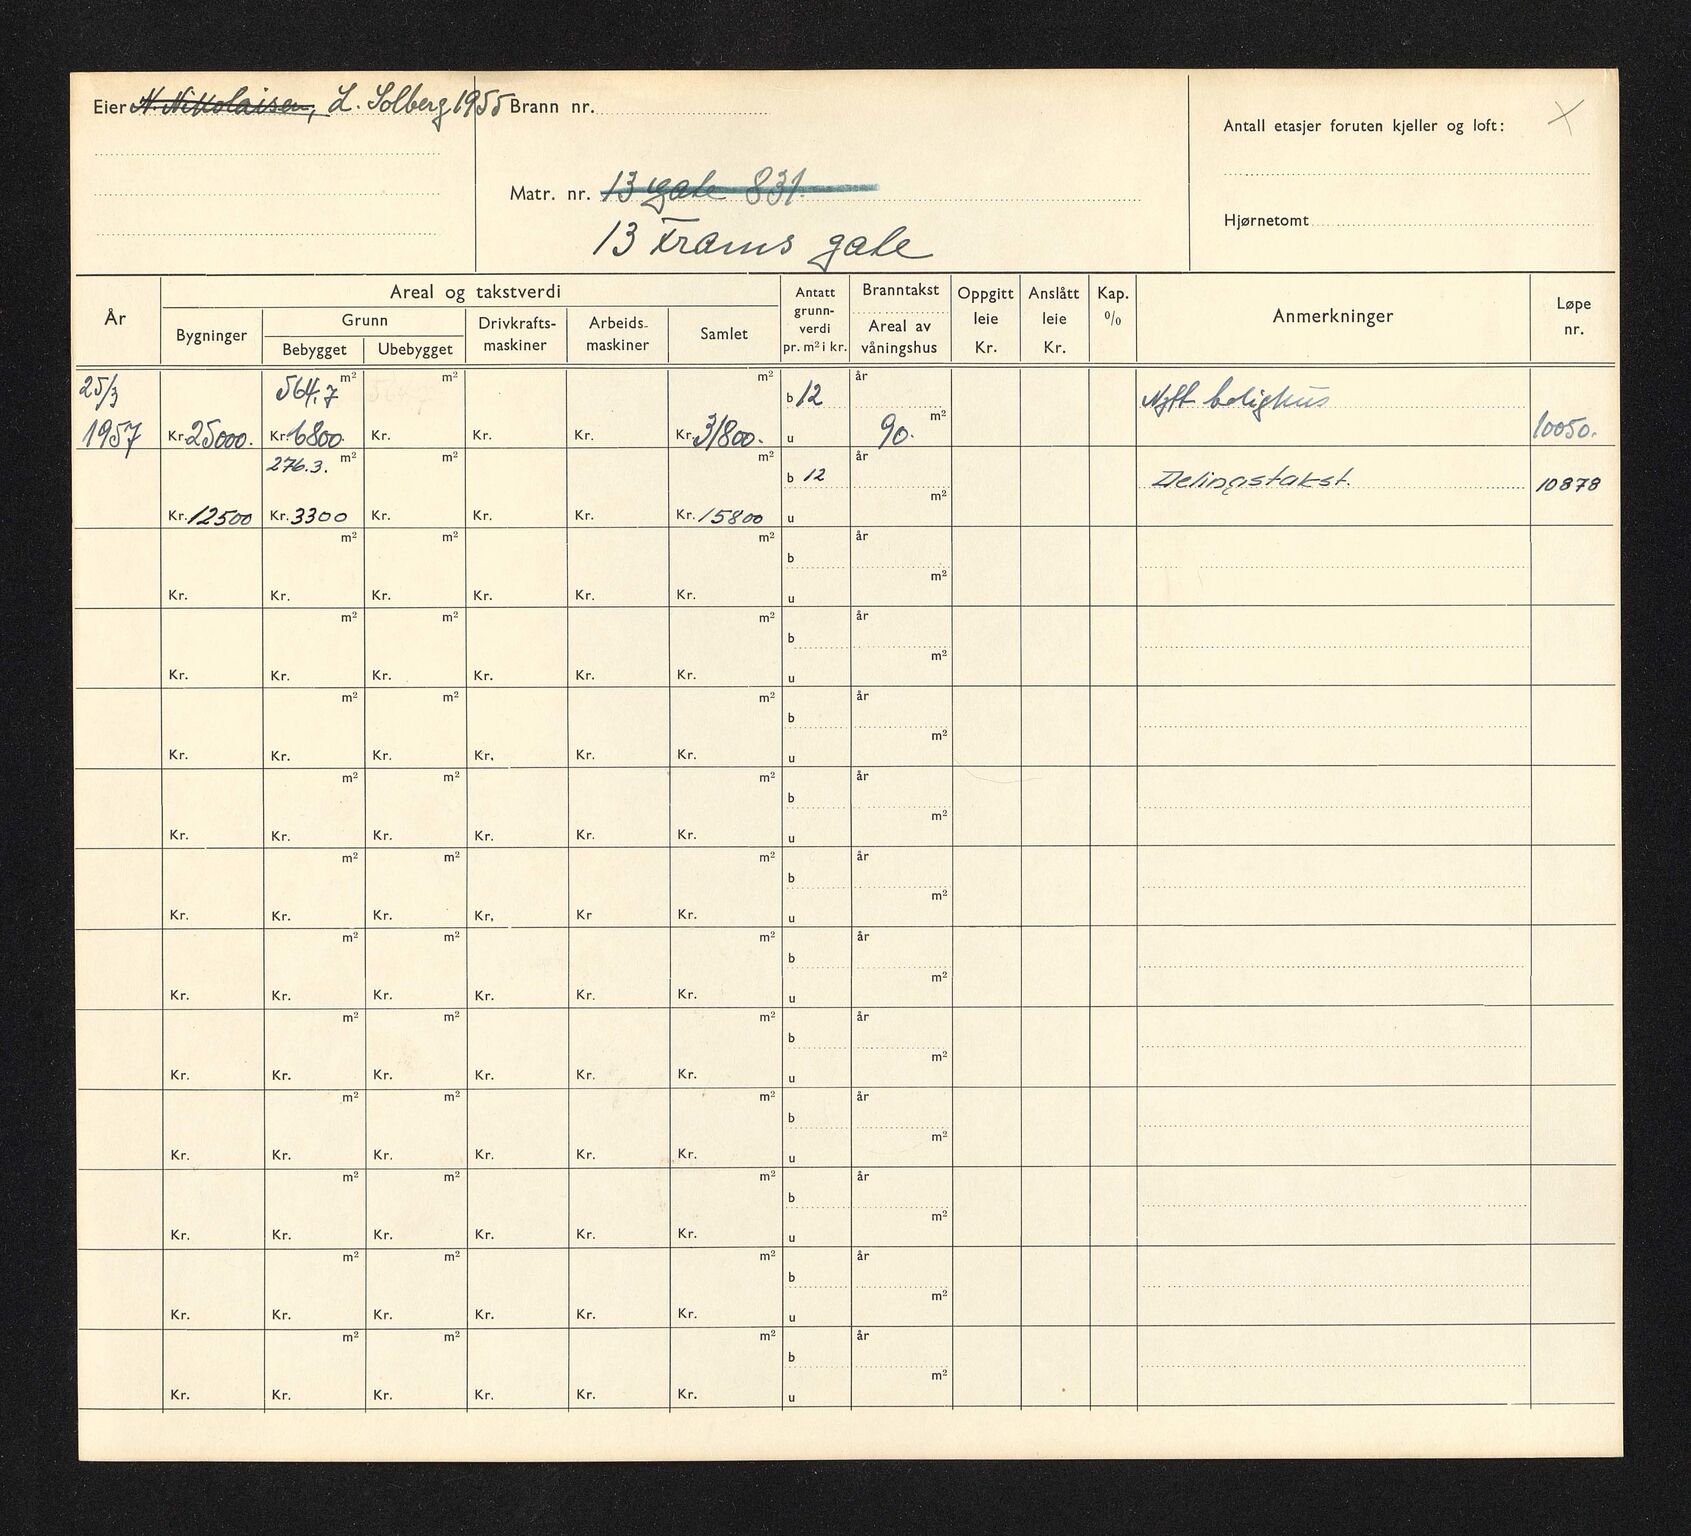 Eier N. Nikolaisen, L. Solberg 1955 Brann nr.
Antall etasjer foruten kjeller og loft:
Matr. nr. 13 gate 831.
Hjørnetomt
13 Frams gate
År
Areal og takstverdi
Bygninger
Grunn
Bebygget Ubebygget
Drivkrafts-
maskiner
Arbeids-
maskiner
Samlet
Antatt
grunn-
verdi
pr. m² i kr.
Branntakst
Areal av
våningshus
Oppgitt
leie
Kr.
Anslått
leie
Kr.
Kap.
%
Anmerkninger
Løpe
nr.
25/3 564.7 m² m² m² b 12 år Nytt bolighus
1957 Kr. 25000. Kr. 6800. Kr. Kr. Kr. Kr. 31800. u 90. m² 10050.
276.3. m² m² m² b 12 år Delingstakst. 10878
Kr. 12500 Kr. 3300 Kr. Kr. Kr. Kr. 15800 u m²
m² m² m² b år
Kr. Kr. Kr. Kr. Kr. Kr. u m²
m² m² m² b år
Kr. Kr. Kr. Kr. Kr. Kr. u m²
m² m² m² b år
Kr. Kr. Kr. Kr, Kr. Kr. u m²
m² m² m² b år
Kr. Kr. Kr. Kr. Kr. Kr. u m²
m² m² m² b år
Kr. Kr. Kr. Kr, Kr Kr. u m²
m² m² m² b år
Kr. Kr. Kr. Kr. Kr. Kr. u m²
m² m² m² b år
Kr. Kr. Kr. Kr. Kr. Kr. u m²
m² m² m² b år
Kr. Kr. Kr. Kr. Kr. Kr. u m²
m² m² m² b år
Kr. Kr. Kr. Kr. Kr. Kr. u m²
m² m² m² b år
Kr. Kr. Kr. Kr. Kr. Kr. u m²
m² m² m² b år
Kr. Kr. Kr. Kr. Kr. Kr. u m²